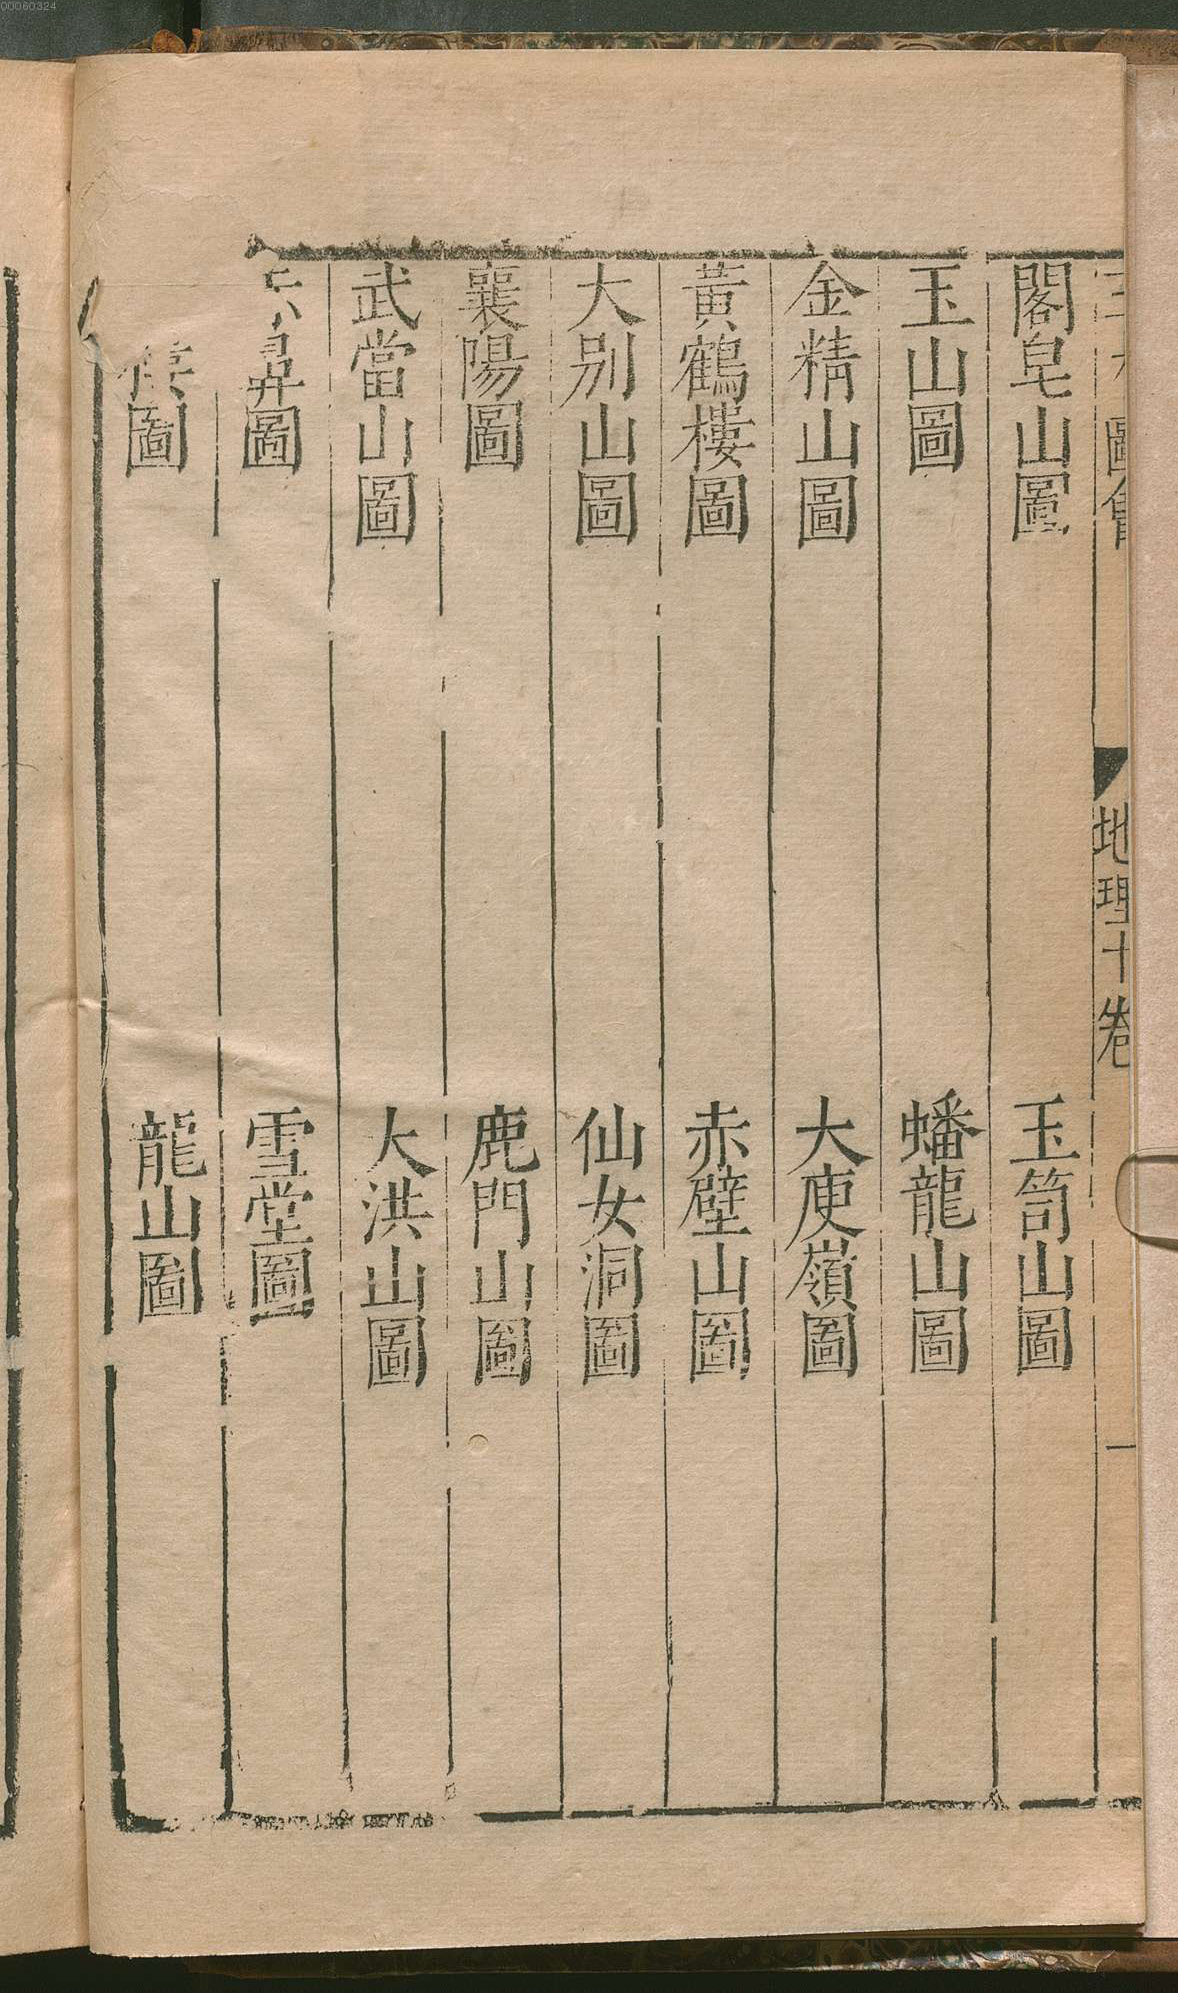 00060324
三才圖會
地理十卷
一
閣皂山圖
玉笥山圖
玉山圖
蟠龍山圖
金精山圖
大庾嶺圖
黃鶴樓圖
赤壁山圖
大別山圖
仙女洞圖
襄陽圖
鹿門山圖
武當山圖
大洪山圖
圖
雪堂圖
圖
龍山圖